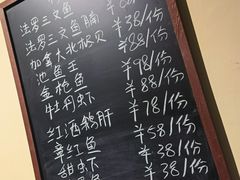 法罗三文鱼
法罗三文鱼腩 ¥38/份
加拿大北极贝 ¥88/份
池鱼王 ¥98/份
金枪鱼 ¥88/份
牡丹虾 ¥78/份
红酒鹅肝 ¥58/份
章红鱼 ¥38/份
甜虾 ¥38/份